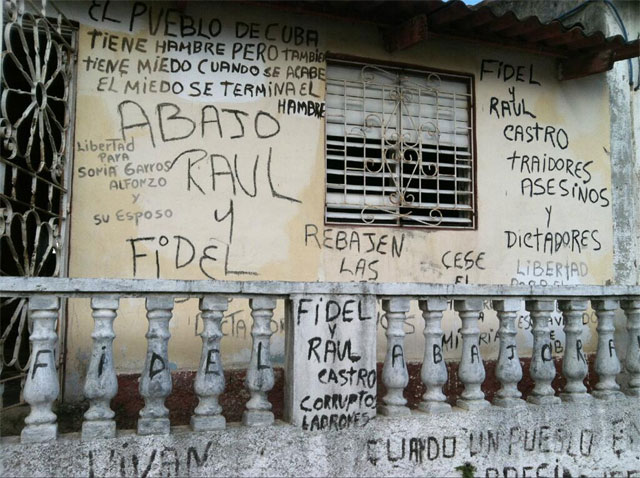 EL PUEBLO DE CUBA
TIENE HAMBRE PERO TAMBIEN
TIENE MIEDO CUANDO SE ACABE
EL MIEDO SE TERMINA EL
HAMBRE
ABAJO
RAUL
Y
FIDEL
LIBERTAD
PARA
SONIA GARROS
ALFONZO
Y
SU ESPOSO
FIDEL
Y
RAUL
CASTRO
TRAIDORES
ASESINOS
Y
DICTADORES
REBAJEN
LAS
CESE
EL
LIBERTAD
FIDEL
Y
RAUL
CASTRO
CORRUPTOS
LADRONES
FIDEL
ABAJO RA
VIVAN
CUANDO UN PUEBLO